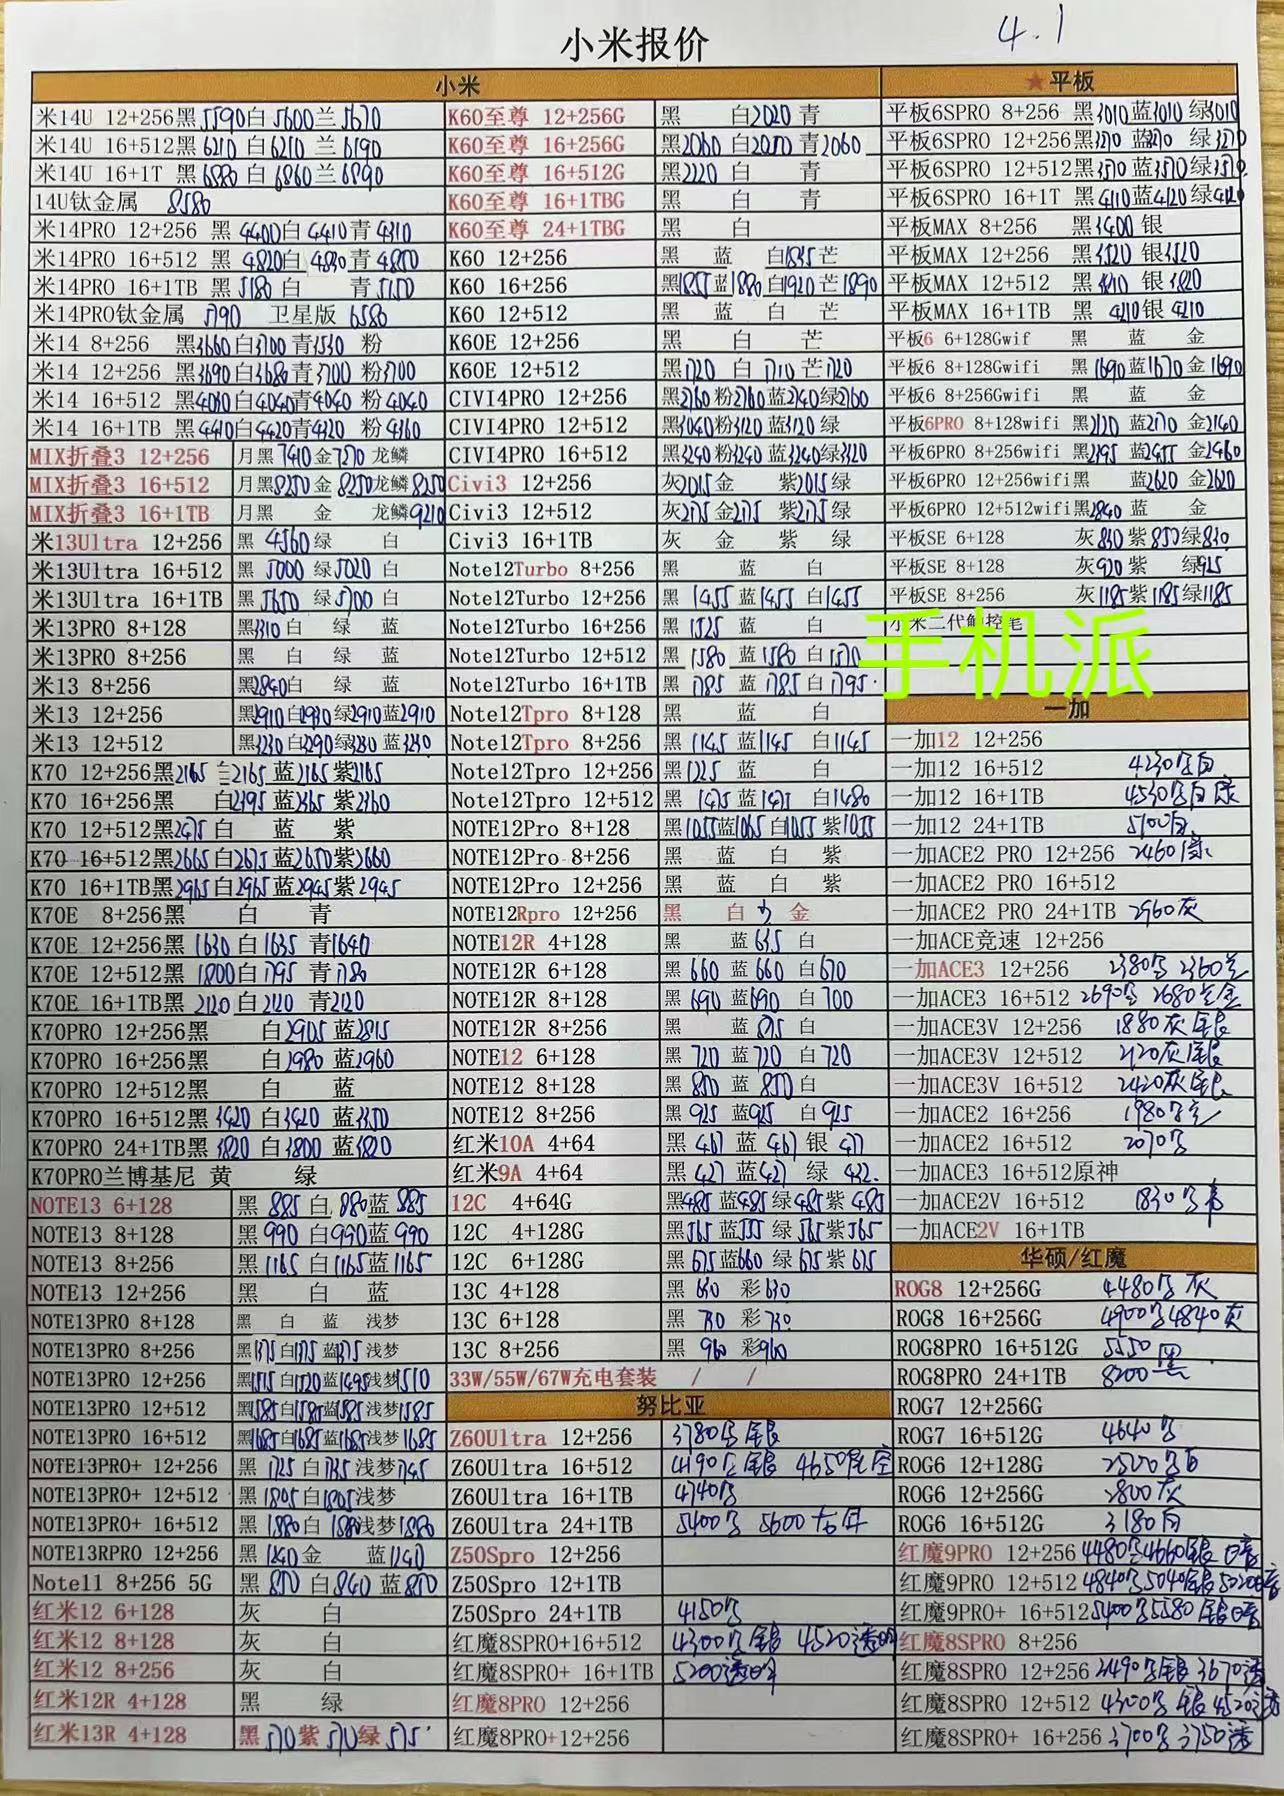 小米报价
4.1
小米
米14U 12+256黑5590白5600兰5670
米14U 16+512黑6210 白6210 兰6190
米14U 16+1T 黑6880白6860兰6890
14U钛金属 8580
米14PRO 12+256 黑 4400白 4410青4310
米14PRO 16+512 黑 4820白 4830青4850
米14PRO 16+1TB 黑 5180 白 青5150
米14PRO钛金属 5790 卫星版 6580
米14 8+256 黑3660白3700青3530 粉
米14 12+256 黑3690白3680青3700 粉3700
米14 16+512 黑4030白4040青4040 粉4040
米14 16+1TB 黑4410白4420青4320 粉4360
MIX折叠3 12+256 月黑7410金7270龙鳞
MIX折叠3 16+512 月黑8250金8250龙鳞8250
MIX折叠3 16+1TB 月黑 金 龙鳞9210
米13Ultra 12+256 黑 4560绿 白
米13Ultra 16+512 黑 5000 绿5020 白
米13Ultra 16+1TB 黑 5650 绿5700 白
米13PRO 8+128 黑3310白 绿 蓝
米13PRO 8+256 黑 白 绿 蓝
米13 8+256 黑2840白 绿 蓝
米13 12+256 黑2910白2930绿2910蓝2910
米13 12+512 黑3230白3290绿3230蓝3230
K70 12+256黑2165白2165蓝2165紫2165
K70 16+256黑 白2395蓝2365紫2360
K70 12+512黑2475白 蓝 紫
K70 16+512黑2665白2675蓝2650紫2660
K70 16+1TB黑2965白2965蓝2945紫2945
K70E 8+256黑 白 青
K70E 12+256黑 1630白1635 青1640
K70E 12+512黑 1800白1795 青1780
K70E 16+1TB黑 2120白2120 青2120
K70PRO 12+256黑 白2905蓝2815
K70PRO 16+256黑 白2980蓝2960
K70PRO 12+512黑 白 蓝
K70PRO 16+512黑3420 白3420 蓝3350
K70PRO 24+1TB黑3820 白3800 蓝3820
K70PRO兰博基尼 黄 绿
NOTE13 6+128 黑 885白 880蓝 885
NOTE13 8+128 黑990 白990蓝990
NOTE13 8+256 黑1165 白1165蓝1165
NOTE13 12+256 黑 白 蓝
NOTE13PRO 8+128 黑 白 蓝 浅梦
NOTE13PRO 8+256 黑1375白1375蓝1375浅梦
NOTE13PRO 12+256 黑1515白1520蓝1495浅梦1510
NOTE13PRO 12+512 黑1585白1585蓝1585浅梦1585
NOTE13PRO 16+512 黑1685白1685蓝1685浅梦1685
NOTE13PRO+ 12+256 黑 1725 白1735浅梦1745
NOTE13PRO+ 12+512 黑 1805白1805浅梦
NOTE13PRO+ 16+512 黑 1880白 1880浅梦1880
NOTE13RPRO 12+256 黑 1240金 蓝1240
Note11 8+256 5G 黑 850 白840 蓝850
红米12 6+128 灰 白
红米12 8+128 灰 白
红米12 8+256 灰 白
红米12R 4+128 黑 绿
红米13R 4+128 黑 570紫 570绿 575
K60至尊 12+256G 黑 白2020 青
K60至尊 16+256G 黑2060 白2050青2060
K60至尊 16+512G 黑2220 白 青
K60至尊 16+1TBG 黑 白 青
K60至尊 24+1TBG 黑 白
K60 12+256 黑 蓝 白1835芒
K60 16+256 黑1855蓝1880白1920芒1890
K60 12+512 黑 蓝 白 芒
K60E 12+256 黑 白 芒
K60E 12+512 黑1720 白1710芒1720
CIVI4PRO 12+256 黑2760粉2760蓝2740绿2760
CIVI4PRO 12+512 黑3040粉3120蓝3120绿
CIVI4PRO 16+512 黑3240粉3240蓝3240绿3320
Civi3 12+256 灰2015金 紫2015绿
Civi3 12+512 灰2175金2175紫2175绿
Civi3 16+1TB 灰 金 紫 绿
Note12Turbo 8+256 黑 蓝 白
Note12Turbo 12+256 黑 1455蓝1455 白1455
Note12Turbo 16+256 黑1525 蓝 白
Note12Turbo 12+512 黑 1580 蓝1580 白1570
Note12Turbo 16+1TB 黑 1785 蓝1785白1795
Note12Tpro 8+128 黑 蓝 白
Note12Tpro 8+256 黑1145 蓝1145 白1145
Note12Tpro 12+256 黑1225 蓝 白
Note12Tpro 12+512 黑 1475 蓝1475 白1480
NOTE12Pro 8+128 黑1055蓝1065白1055紫1055
NOTE12Pro 8+256 黑 蓝 白 紫
NOTE12Pro 12+256 黑 蓝 白 紫
NOTE12Rpro 12+256 黑 白 金
NOTE12R 4+128 黑 蓝635 白
NOTE12R 6+128 黑660 蓝660 白670
NOTE12R 8+128 黑690 蓝690 白700
NOTE12R 8+256 黑 蓝875 白
NOTE12 6+128 黑720 蓝720 白720
NOTE12 8+128 黑850 蓝850白
NOTE12 8+256 黑925 蓝925 白925
红米10A 4+64 黑 467 蓝 467 银 477
红米9A 4+64 黑 427 蓝427 绿 422
12C 4+64G 黑485蓝485绿485紫485
12C 4+128G 黑565蓝555绿565紫565
12C 6+128G 黑675蓝660 绿675紫675
13C 4+128 黑 630 彩630
13C 6+128 黑 730 彩730
13C 8+256 黑 960 彩960
33W/55W/67W充电套装 / /
努比亚
Z60Ultra 12+256 3780黑银
Z60Ultra 16+512 4190黑银 4650星空
Z60Ultra 16+1TB 4740黑
Z60Ultra 24+1TB 5400黑 5600
Z50Spro 12+256
Z50Spro 12+1TB
Z50Spro 24+1TB 4150黑
红魔8SPRO+16+512 4300黑银 4520透明
红魔8SPRO+ 16+1TB 5200透明
红魔8PRO 12+256
红魔8PRO+12+256
★平板
平板6SPRO 8+256 黑3010蓝3010绿3010
平板6SPRO 12+256黑3270 蓝3270 绿3270
平板6SPRO 12+512黑3570蓝3570绿3570
平板6SPRO 16+1T 黑4110蓝4120绿4120
平板MAX 8+256 黑3400 银
平板MAX 12+256 黑3520 银3520
平板MAX 12+512 黑3810 银3820
平板MAX 16+1TB 黑 4210银 4210
平板6 6+128Gwif 黑 蓝 金
平板6 8+128Gwifi 黑1690蓝1670金1690
平板6 8+256Gwifi 黑 蓝 金
平板6PRO 8+128wifi 黑2120 蓝2170 金2140
平板6PRO 8+256wifi 黑2395 蓝2455 金2460
平板6PRO 12+256wifi黑 蓝2620金2620
平板6PRO 12+512wifi黑2840蓝 金
平板SE 6+128 灰830紫850绿830
平板SE 8+128 灰920紫 绿925
平板SE 8+256 灰1185紫1185绿1185
小米二代触控笔
手机派
一加
一加12 12+256
一加12 16+512 4230黑白
一加12 16+1TB 4530黑白绿
一加12 24+1TB 5100白
一加ACE2 PRO 12+256 2460绿
一加ACE2 PRO 16+512
一加ACE2 PRO 24+1TB 2960灰
一加ACE竞速 12+256
一加ACE3 12+256 2380黑 2360蓝
一加ACE3 16+512 2690黑 2680蓝金
一加ACE3V 12+256 1880灰银
一加ACE3V 12+512 2120灰银
一加ACE3V 16+512 2420灰银
一加ACE2 16+256 1980黑
一加ACE2 16+512 2070黑
一加ACE3 16+512原神
一加ACE2V 16+512 1830黑
一加ACE2V 16+1TB
华硕/红魔
ROG8 12+256G 4480黑灰
ROG8 16+256G 4900黑4840灰
ROG8PRO 16+512G 5550黑
ROG8PRO 24+1TB 8200黑
ROG7 12+256G
ROG7 16+512G 4640黑
ROG6 12+128G 2500黑白
ROG6 12+256G 2800灰
ROG6 16+512G 3180白
红魔9PRO 12+256 4480黑4660银
红魔9PRO 12+512 4840黑5040银5020
红魔9PRO+ 16+5125400黑5580银
红魔8SPRO 8+256
红魔8SPRO 12+256 3490黑银3670透
红魔8SPRO 12+512 4300黑银4520透
红魔8SPRO+ 16+256 3700黑3750透